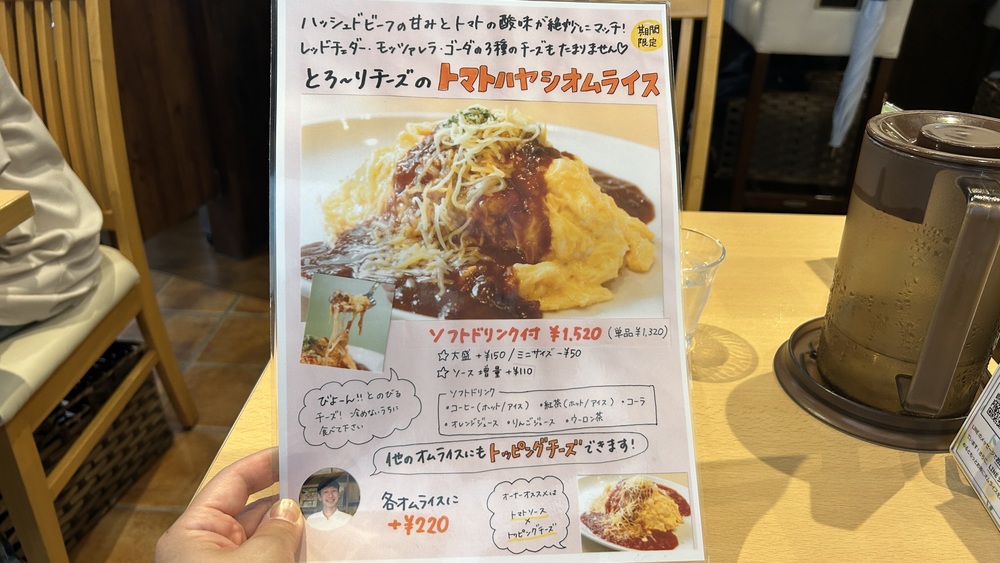 ハッシュドビーフの甘みとトマトの酸味が絶妙にマッチ!
期間
限定
レッドチェダー・モッツァレラ・ゴーダの3種のチーズもたまりません♡
とろ〜りチーズの トマトハヤシオムライス
ソフトドリンク付 ¥1,520 (単品¥1,320)
☆大盛 +¥150 / ミニサイズ -¥50
☆ソース増量 +¥110
びよーん!! とのびる
チーズ! 冷めないうちに
食べて下さい
ソフトドリンク
・コーヒー(ホット/アイス) ・紅茶(ホット/アイス) ・コーラ
・オレンジジュース ・りんごジュース ・ウーロン茶
他のオムライスにも トッピングチーズ できます!
各オムライスに
+¥220
オーナーオススメは
トマトソース
×
トッピングチーズ